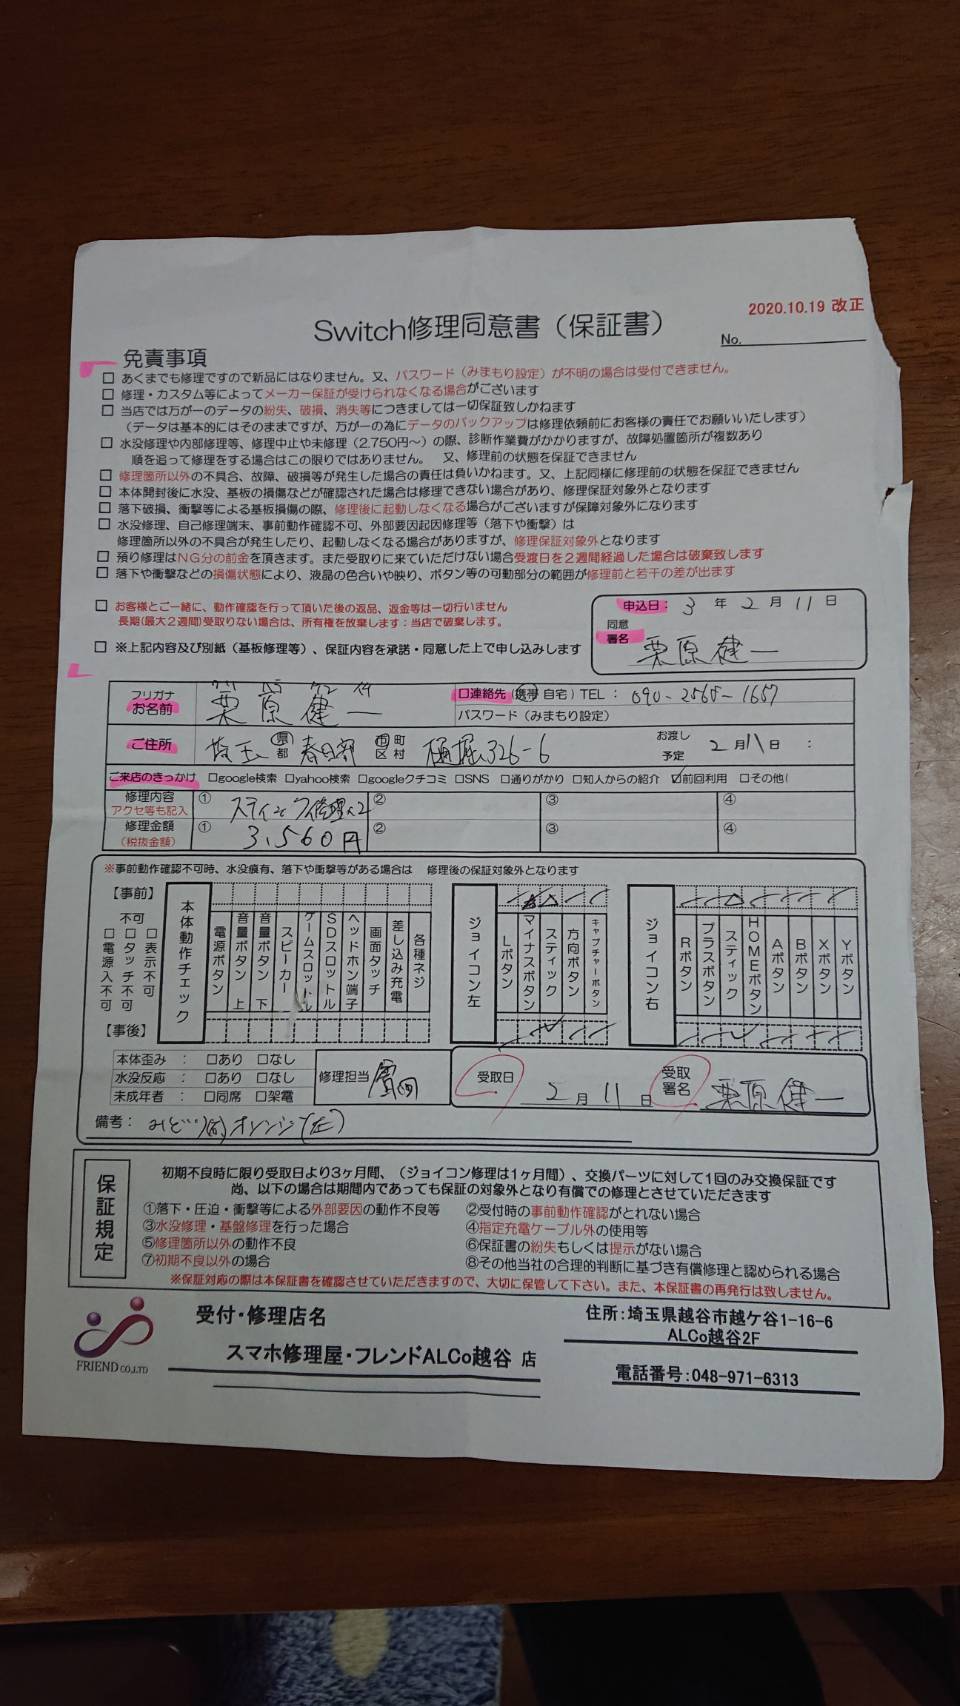 2020.10.19 改正
Switch修理同意書（保証書）
No.
免責事項
□ あくまでも修理ですので新品にはなりません。又、パスワード（みまもり設定）が不明の場合は受付できません。
□ 修理・カスタム等によってメーカー保証が受けられなくなる場合がございます
□ 当店では万が一のデータの紛失、破損、消失等につきましては一切保証致しかねます
（データは基本的にはそのままですが、万が一の為にデータのバックアップは修理依頼前にお客様の責任でお願いいたします）
□ 水没修理や内部修理等、修理中止や未修理（2,750円～）の際、診断作業費がかかりますが、故障処置箇所が複数あり
順を追って修理をする場合はこの限りではありません。 又、修理前の状態を保証できません
□ 修理箇所以外の不具合、故障、破損等が発生した場合の責任は負いかねます。又、上記同様に修理前の状態を保証できません
□ 本体開封後に水没、基板の損傷などが確認された場合は修理できない場合があり、修理保証対象外となります
□ 落下破損、衝撃等による基板損傷の際、修理後に起動しなくなる場合がございますが保障対象外になります
□ 水没修理、自己修理端末、事前動作確認不可、外部要因起因修理等（落下や衝撃）は
修理箇所以外の不具合が発生したり、起動しなくなる場合がありますが、修理保証対象外となります
□ 預り修理はNG分の前金を頂きます。また受取りに来ていただけない場合受渡日を２週間経過した場合は破棄致します
□ 落下や衝撃などの損傷状態により、液晶の色合いや映り、ボタン等の可動部分の範囲が修理前と若干の差が出ます
□ お客様とご一緒に、動作確認を行って頂いた後の返品、返金等は一切行いません
長期(最大２週間)受取りない場合は、所有権を放棄します：当店で破棄します。
□ ※上記内容及び別紙（基板修理等）、保証内容を承諾・同意した上で申し込みします
申込日： 3 年 2 月 11 日
同意
署名 栗原健一
フリガナ
お名前 栗原健一
□連絡先（携帯 自宅）TEL： 090-2565-1657
パスワード（みまもり設定）
ご住所 埼玉 県都 春日部 市区町村 樋堀326-6
お渡し
予定 2月11日 ：
ご来店のきっかけ □google検索 □yahoo検索 □googleクチコミ □SNS □通りがかり □知人からの紹介 ☑前回利用 □その他(
修理内容 ① スティック修理×2 ② ③ ④
アクセ等も記入
修理金額 ① 3,560円 ② ③ ④
（税抜金額）
※事前動作確認不可時、水没痕有、落下や衝撃等がある場合は 修理後の保証対象外となります
【事前】
不可
□電源入不可
□タッチ不可
□表示不可
【事後】
本体動作チェック
電源ボタン
音量ボタン 上
音量ボタン 下
スピーカー
ゲームスロットル
SDスロットル
ヘッドホン端子
画面タッチ
差し込み充電
各種ネジ
ジョイコン左
Lボタン
マイナスボタン
スティック
方向ボタン
キャプチャーボタン
ジョイコン右
Rボタン
プラスボタン
スティック
HOMEボタン
Aボタン
Bボタン
Xボタン
Yボタン
本体歪み ： □あり □なし
水没反応 ： □あり □なし
未成年者 ： □同席 □架電
修理担当
受取日 2月11日
受取
署名 栗原健一
備考： オレンジ(左)
保証規定
初期不良時に限り受取日より3ヶ月間、（ジョイコン修理は1ヶ月間）、交換パーツに対して1回のみ交換保証です
尚、以下の場合は期間内であっても保証の対象外となり有償での修理とさせていただきます
①落下・圧迫・衝撃等による外部要因の動作不良等 ②受付時の事前動作確認がとれない場合
③水没修理・基盤修理を行った場合 ④指定充電ケーブル外の使用等
⑤修理箇所以外の動作不良 ⑥保証書の紛失もしくは提示がない場合
⑦初期不良以外の場合 ⑧その他当社の合理的判断に基づき有償修理と認められる場合
※保証対応の際は本保証書を確認させていただきますので、大切に保管して下さい。また、本保証書の再発行は致しません。
FRIEND CO.,LTD
受付・修理店名
スマホ修理屋・フレンドALCo越谷 店
住所：埼玉県越谷市越ケ谷1-16-6
ALCo越谷2F
電話番号：048-971-6313